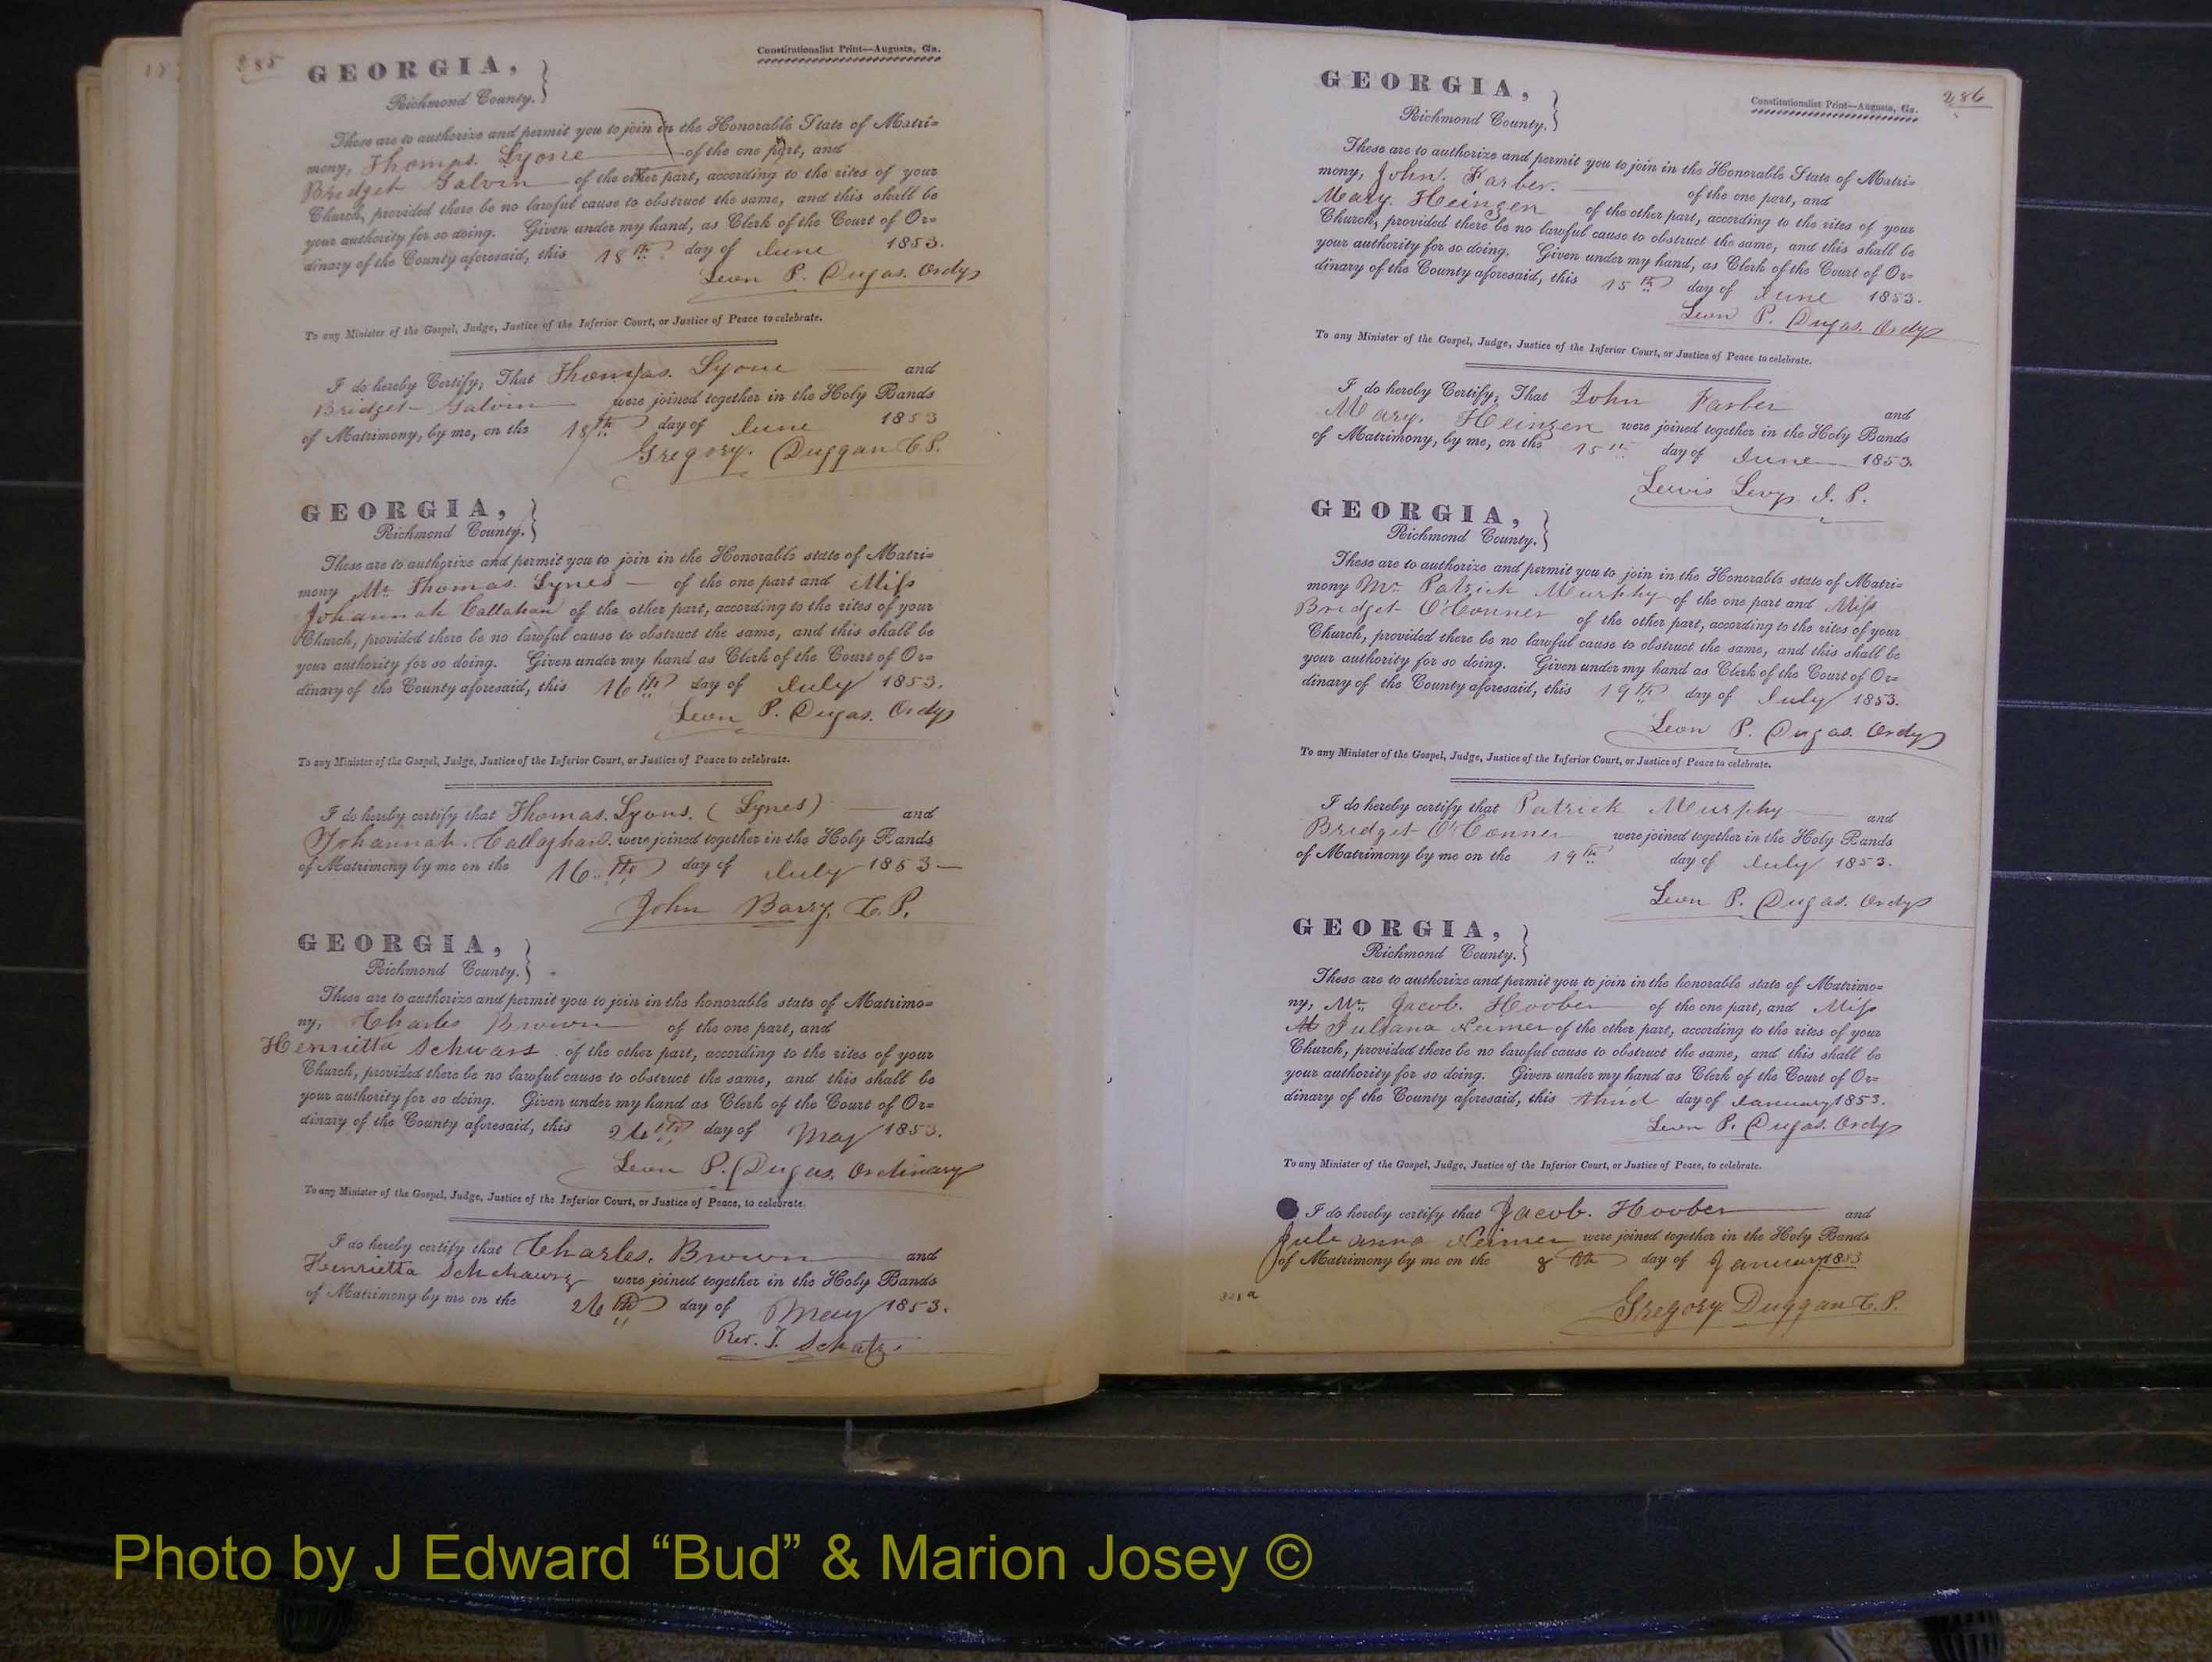 285
Constitutionalist Print—Augusta, Ga.
GEORGIA,
Richmond County.
These are to authorize and permit you to join in the Honorable State of Matri=
mony, Thomas. Lyone of the one part, and
Bridget Galvin of the other part, according to the rites of your
Church, provided there be no lawful cause to obstruct the same, and this shall be
your authority for so doing. Given under my hand, as Clerk of the Court of Or=
dinary of the County aforesaid, this 18th day of June 1853.
Leon P. Dugas. Ordy
To any Minister of the Gospel, Judge, Justice of the Inferior Court, or Justice of Peace to celebrate.
I do hereby Certify; That Thomas. Lyone and
Bridget Galvin were joined together in the Holy Bands
of Matrimony, by me, on the 18th day of June 1853
Gregory. Duggan C.P.
GEORGIA,
Richmond County.
These are to authorize and permit you to join in the Honorable state of Matri=
mony Mr. Thomas. Lynes of the one part and Miss
Johannah Callahan of the other part, according to the rites of your
Church, provided there be no lawful cause to obstruct the same, and this shall be
your authority for so doing. Given under my hand as Clerk of the Court of Or=
dinary of the County aforesaid, this 16th day of July 1853.
Leon P. Dugas. Ordy
To any Minister of the Gospel, Judge, Justice of the Inferior Court, or Justice of Peace to celebrate.
I do hereby certify that Thomas. Lyons. (Lynes) and
Johannah. Callaghan. were joined together in the Holy Bands
of Matrimony by me on the 16th day of July 1853
John Barry, C.P.
GEORGIA,
Richmond County.
These are to authorize and permit you to join in the honorable state of Matrimo=
ny, Charles Brown of the one part, and
Henrietta Schwars of the other part, according to the rites of your
Church, provided there be no lawful cause to obstruct the same, and this shall be
your authority for so doing. Given under my hand as Clerk of the Court of Or=
dinary of the County aforesaid, this 26th day of May 1853.
Leon P. Dugas. Ordinary
To any Minister of the Gospel, Judge, Justice of the Inferior Court, or Justice of Peace, to celebrate.
I do hereby certify that Charles. Brown and
Henrietta were joined together in the Holy Bands
of Matrimony by me on the 26th day of May 1853.
Rev. T. Schatz.
286
Constitutionalist Print—Augusta, Ga.
GEORGIA,
Richmond County.
These are to authorize and permit you to join in the Honorable State of Matri=
mony, John. Farber. of the one part, and
Mary. Heinzen of the other part, according to the rites of your
Church, provided there be no lawful cause to obstruct the same, and this shall be
your authority for so doing. Given under my hand, as Clerk of the Court of Or=
dinary of the County aforesaid, this 15th day of June 1853.
Leon P. Dugas. Ordy
To any Minister of the Gospel, Judge, Justice of the Inferior Court, or Justice of Peace to celebrate.
I do hereby Certify; That John Farber and
Mary. Heinzen were joined together in the Holy Bands
of Matrimony, by me, on the 15th day of June 1853.
Lewis Levy. J. P.
GEORGIA,
Richmond County.
These are to authorize and permit you to join in the Honorable state of Matri=
mony Mr. Patrick Murphy of the one part and Miss
Bridget O'Conner of the other part, according to the rites of your
Church, provided there be no lawful cause to obstruct the same, and this shall be
your authority for so doing. Given under my hand as Clerk of the Court of Or=
dinary of the County aforesaid, this 19th day of July 1853.
Leon P. Dugas. Ordy
To any Minister of the Gospel, Judge, Justice of the Inferior Court, or Justice of Peace to celebrate.
I do hereby certify that Patrick Murphy and
Bridget O'Conner were joined together in the Holy Bands
of Matrimony by me on the 19th day of July 1853.
Leon P. Dugas. Ordy
GEORGIA,
Richmond County.
These are to authorize and permit you to join in the honorable state of Matrimo=
ny, Mr. Jacob. Hoober of the one part, and Miss
Juliana Reimer of the other part, according to the rites of your
Church, provided there be no lawful cause to obstruct the same, and this shall be
your authority for so doing. Given under my hand as Clerk of the Court of Or=
dinary of the County aforesaid, this third day of January 1853.
Leon P. Dugas. Ordy
To any Minister of the Gospel, Judge, Justice of the Inferior Court, or Justice of Peace, to celebrate.
I do hereby certify that Jacob. Hoober and
Juli anna Reimer were joined together in the Holy Bands
of Matrimony by me on the 8th day of January 1853
Gregory. Duggan C.P.
Photo by J Edward “Bud” & Marion Josey ©